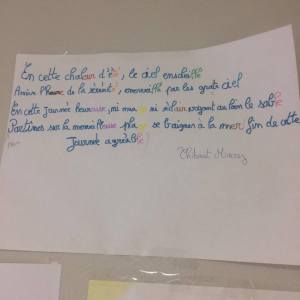 En cette chaleur d'été, le ciel ensoleillé
Arrive l'heure de la sérénité, émerveillé par les quatr ciel
En cette Journée heureuse, ni mur ni éclair voyant au loin le sable
Partimes sur la merveilleuse plage se baigner à la mer fin de cette
Journée agréable!
Thibaut